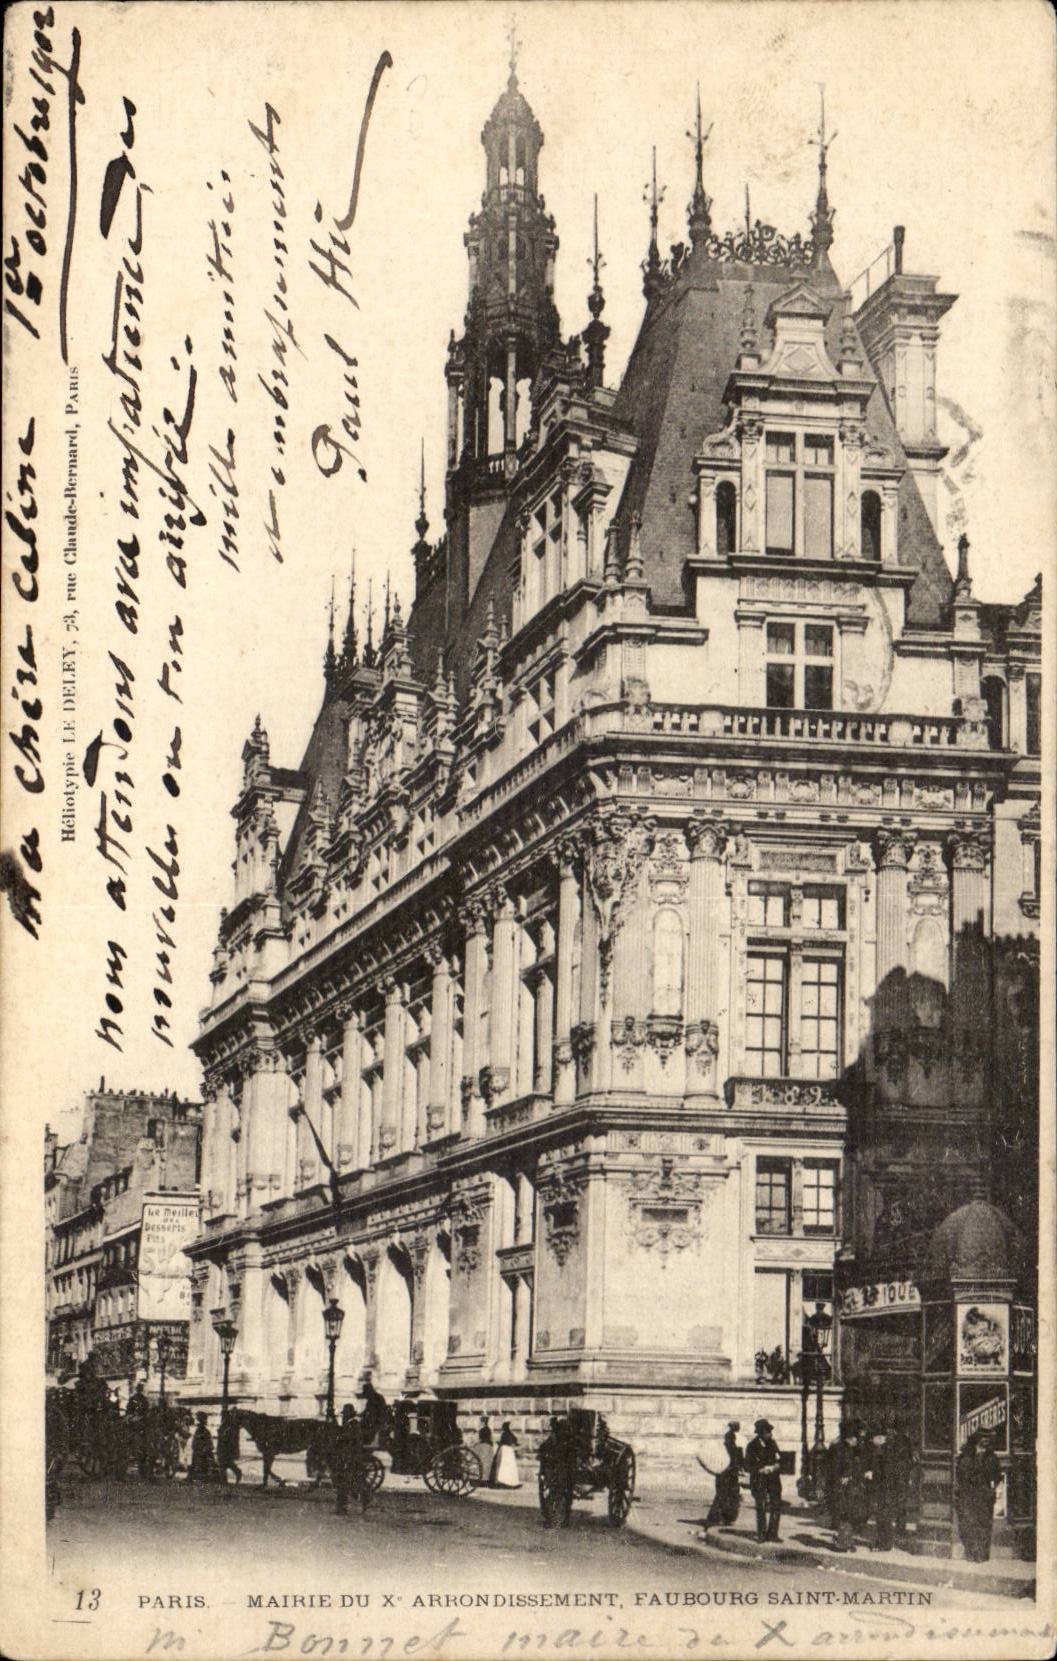 Ma chère Céline 1er octobre 1902
nous attendons avec impatience des
nouvelles ou ton arrivée.
mille amitiés
et embrassements
Paul
Héliotypie LE DELEY, 73, rue Claude-Bernard, PARIS
Le Meilleur
des
Desserts
Fins
13 PARIS. — MAIRIE DU Xe ARRONDISSEMENT, FAUBOURG SAINT-MARTIN
M Bonnet maire du X arrondissement